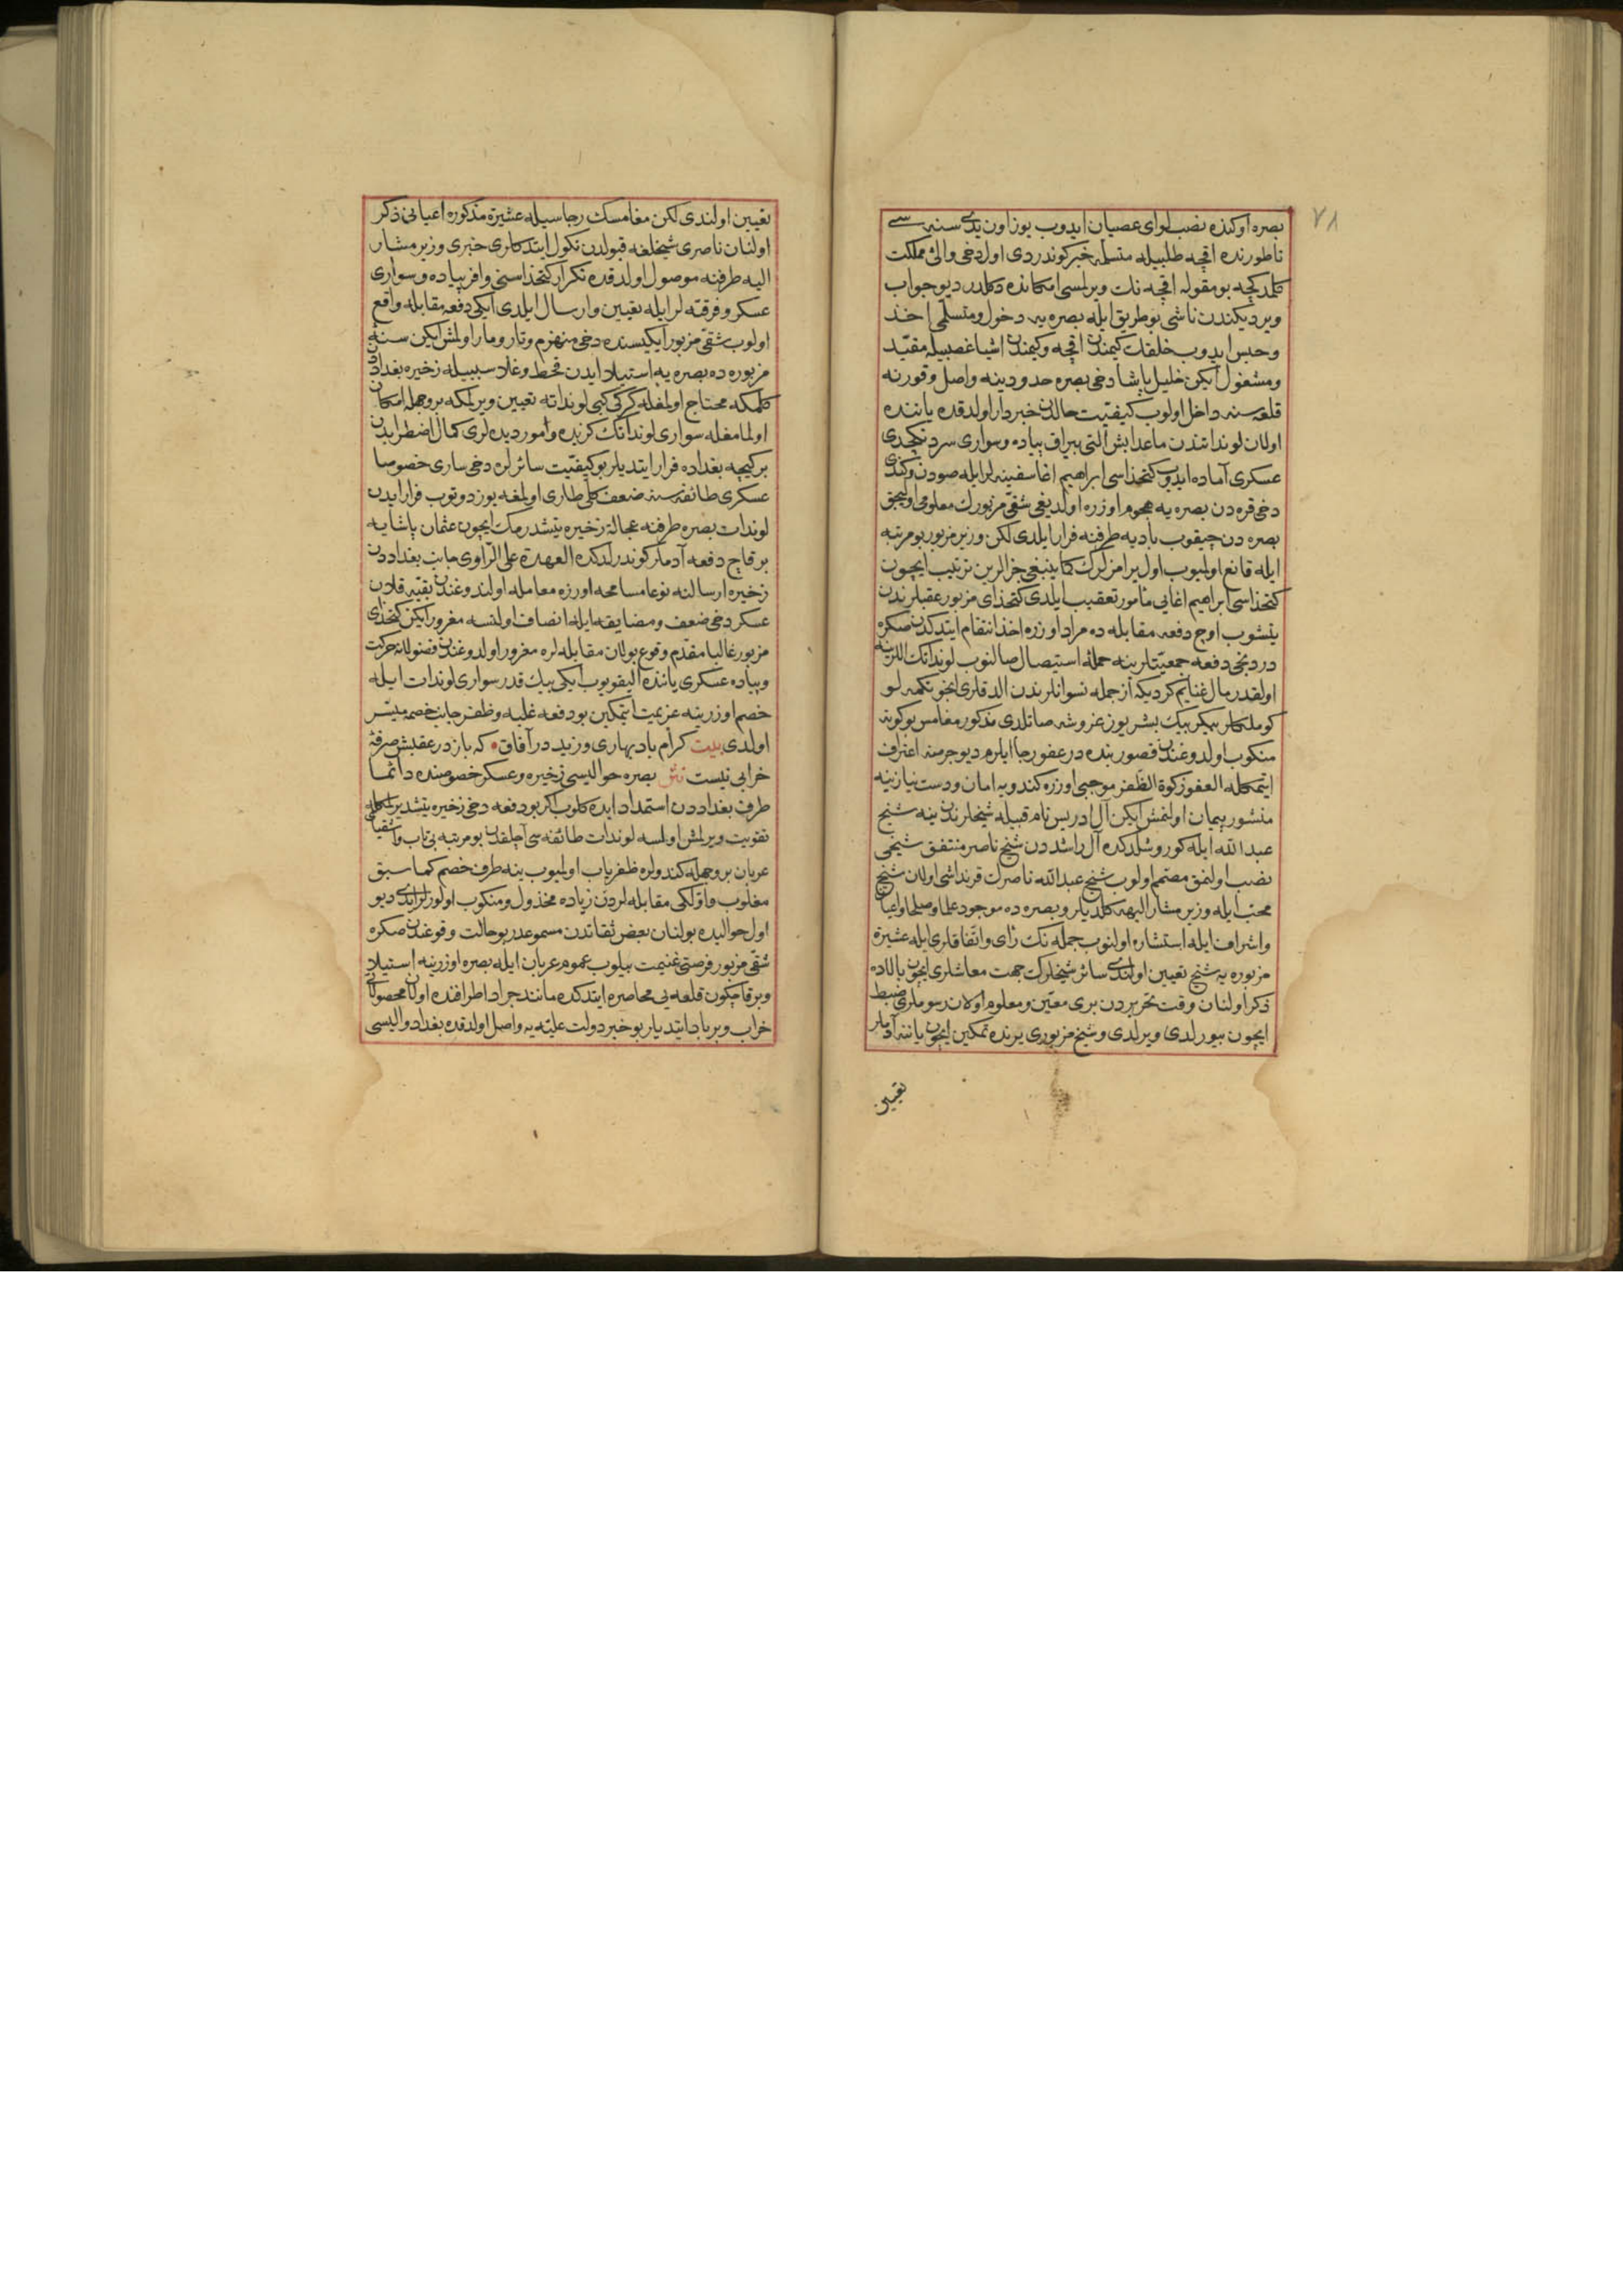 ٧٨
بصره اوكنده نصب لوای عصیان ایدوب یوز اون یدی سنه سی
ناطورنده اقچه طلبیله متسلمه خبر كوندردی اول دخی والئ مملكت
كلمدكچه بو مقوله اقچه نك ویرلمسی امكانده دكلدر دیو جواب
ویردیكندن ناشی بو طریق ایله بصره یه دخول و متسلمی اخذ
و حبس ایدوب خلقك كیمندن اقچه و كیمندن اشیا غصبیله مقیّد
و مشغول ایكن خلیل پاشا دخی بصره حدودینه واصل و قورنه
قلعه سنه داخل اولوب كیفیّت حالدن خبردار اولدقده یاننده
اولان لونداتندن ماعدا بش التی بیراق پیاده و سواری سردنكچدی
عسكری آماده ایدوب كتخداسی ابراهیم اغا سفینه لر ایله صودن و كندی
دخی قره دن بصره یه هجوم اوزره اولدیغی شقئ مزبورك معلومی اولیجق
بصره دن چیقوب بادیه طرفنه فرار ایلدی لكن وزیر مزبور بو مرتبه
ایله قانع اولمیوب اول یرامزلرك كما ینبغی جزالرین ترتیب ایچون
كتخداسی ابراهیم اغایی مأمور تعقیب ایلدی كتخدای مزبور عقبلرندن
یتشوب اوچ دفعه مقابله ده مراد اوزره اخذ انتقام ایتدكدن صكره
دردنجی دفعه جمعیّتلرینه حملۀ استیصال صالنوب لونداتك اللرینه
اولقدر مال غنایم كردیكه از جمله نسوانلرندن الدقلری انجو نكمه لو
كوملكلر بیكر بیك بشر یوز غروشه صاتلدی مذكور مغامس بو كونه
منكوب اولدوغندن قصور بنده در عفو رجا ایلرم دیو جرمنه اعتراف
ایتمكله العفو زكوة الظفر موجبی اوزره كندویه امان و دست نیازینه
منشور پیمان اولنمش ایكن آل ادریس نام قبیله شیخلرندن ینه شیخ
عبد الله ایله كوروشلدكده آل راشددن شیخ ناصر منتفق شیخی
نصب اولنمق مصمّم اولوب شیخ عبد الله ناصرك قرنداشی اولان شیخ
محب ایله وزیر مشار الیهه كلدیلر و بصره ده موجود علما و صلحا و اعیان
و اشراف ایله استشاره اولنوب جمله نك رأی و اتّفاقلری ایله عشیرۀ
مزبوره یه شیخ تعیین اولندی سائر شیخلرك جهت معاشلری ایچون بالاده
ذكر اولنان وقت تحریردن بری معیّن و معلوم اولان رسوملری ضبط
ایچون بیورلدی ویرلدی و شیخ مزبوری یرنده تمكین ایچون یاننه آدملر
تعیین
تعیین اولندی لكن مغامسك رجاسیله عشیرۀ مذكوره اعیانی ذكر
اولنان ناصری شیخلغه قبولدن نكول ایتدكلری خبری وزیر مشار
الیه طرفنه موصول اولدقده تكرار كتخداسنی وافر پیاده و سواری
عسكر و فرقته لر ایله تعیین و ارسال ایلدی ایكی دفعه مقابله واقع
اولوب شقئ مزبور ایكیسنده دخی منهزم و تار و مار اولمش ایكین سنۀ
مزبوره ده بصره یه استیلا ایدن قحط و غلا سببیله زخیره بغداددن
كلمكه محتاج اولمغله كركی كبی لونداته تعیین ویرلمكه بر وجهله امكان
اولمامغله سواری لونداتك كزیده و امور دیده لری كمال اضطرابدن
بر كیجه بغداده فرار ایتدیلر بو كیفیّت سائرلره دخی ساری خصوصا
عسكری طائفه سنه ضعف كلی طاری اولمغه یوز دوتوب فرار ایدن
لوندات بصره طرفنه عجالة زخیره یتشدرمك ایچون عثمان پاشایه
بر قاچ دفعه آدملر كوندرلدكده العهدة علی الرّاوی جانب بغداددن
زخیره ارسالنه نوعا مسامحه اوزره معامله اولندوغندن بقیّه قلان
عسكر دخی ضعف و مضایقه ایله انصاف اولنسه مغرور ایكن كتخدای
مزبور غالبا مقدّم وقوع بولان مقابله لره مغرور اولدوغندن فضولانه حركت
و پیاده عسكری یاننده الیقویوب ایكی بیك قدر سواری لوندات ایله
خصم اوزرینه عزیمت ایتمكین بو دفعه غلبه و ظفر جانب خصمه میسّر
اولدی بیت كرام باد بهاری وزید در آفاق • كه باز در عقبش صرفۀ
خرابی نیست نثر بصره حوالیسی زخیره و عسكر خصوصنده دائما
طرف بغداددن استمداد ایده كلوب اكر بو دفعه دخی زخیره یتشدیرلمكله
تقویت ویرلمش اولسه لوندات طائفه سی آچلقدن بو مرتبه بی تاب و اشقیای
عربان بر وجهله كندولره ظفریاب اولمیوب ینه طرف خصم كما سبق
مغلوب و اوّلكی مقابله لردن زیاده مخذول و منكوب اولورلر ایدی دیو
اول حوالیده بولنان بعض ثقاتدن مسموعدر بو حالت وقوعندن صكره
شقئ مزبور فرصتی غنیمت بیلوب عموم عربان ایله بصره اوزرینه استیلا
و بر قاچ كون قلعه یی محاصره ایتدكده مانند جراد اطرافنده اولان محصولاتی
خراب و بر باد ایتدیلر بو خبر دولت علیّه یه واصل اولدقده بغداد والیسی